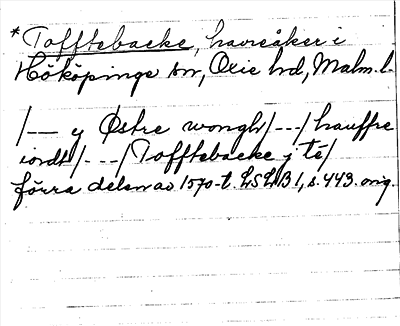 *Tofftebacke, havreåker i
Hököpinge sn, Oxie hd, Malm. l.
/— y Østre wongh/---/hauffre
iordt/---/Tofftebacke j té/
förra delen av 1570-t. LSLB 1, s. 443. orig.